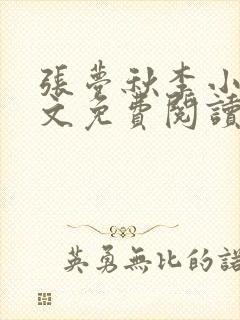 張夢秋李小
文免費閱讀
英勇無比的諾